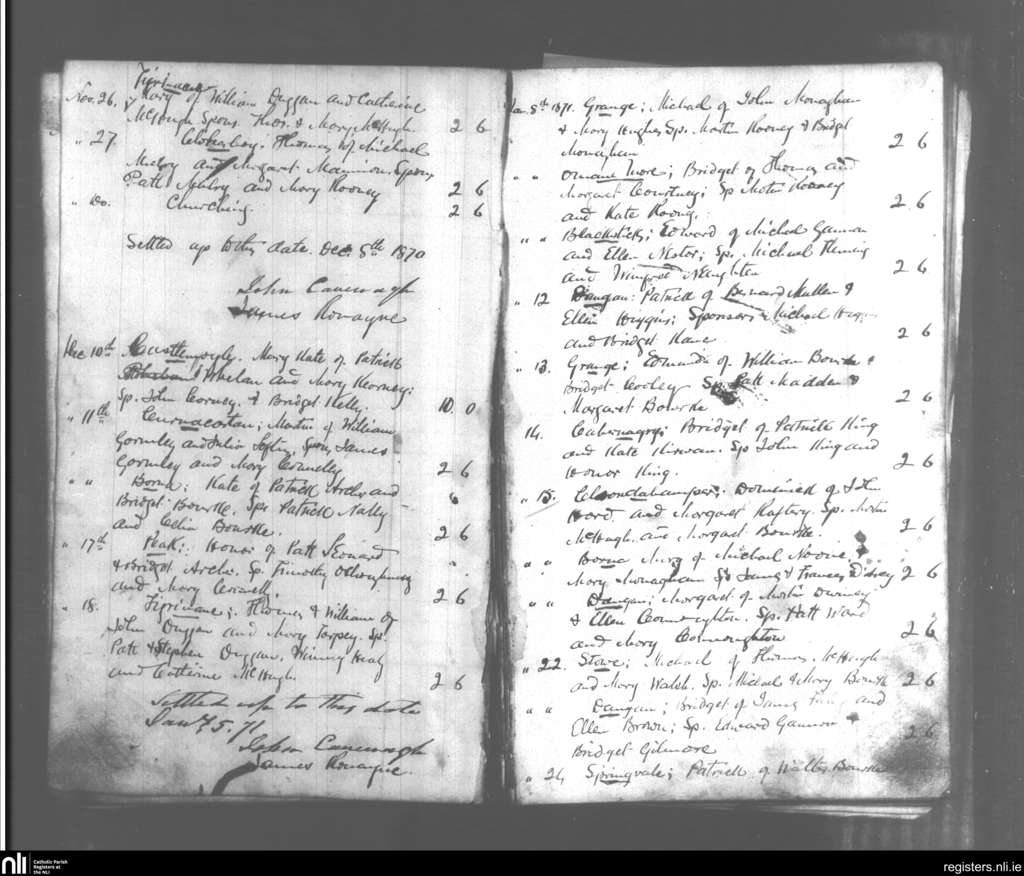 Tiprinane
Nov. 26, Mary of William Duggan and Catherine
McHugh Spons. Thos. & Mary McHugh. 2 6
" 27. Thomas of Michael
and Margaret Mannion. Spons
Patt and Mary Rooney 2 6
" Do. Churching. 2 6
Settled up to this date Dec. 5th 1870
John Cavanagh
James Ronayne
Dec 10th Castlemoyle. Mary Kate of Patrick
Whelan and Mary Kearney;
Sp. John Corney & Bridget Kelly. 10 0
" 11th Martin of William
Gormley and Julia Spon, James
Gormley and Mary Connelly 2 6
" " Borna; Kate of Patrick Archer and 6
Bridget Bourke. Sps Patrick Nally
and Celia Bourke. 2 6
" 17th Peak; Honor of Patt Leonard
& Bridget Archer. Sp. Timothy
and Mary Connelly. 2 6
" 18. Tiprinane; Thomas & William of
John Duggan and Mary Torpey. Sp.
Patt & Stephen Duggan. Winny Healy
and Catherine McHugh. 2 6
Settled up to this date
Jany 5. 71
John Cavanagh
James Ronayne.
Jan. 8th 1871. Grange; Michael of John Monaghan
& Mary Hughes Sp. Martin Rooney & Bridget 2 6
Monaghan
" " more; Bridget of Thomas and
Margaret Courtney; Sp Martin Rooney
and Kate Roony. 2 6
" " Blacksticks; Edward of Michael Gannon
and Ellen Nestor; Sp. Michael Fleming
and Winifred Naughten 2 6
" 12 Dangan: Patrick of Bernard Mullen &
Ellen Higgins; Sponsors Michael Higgins
and Bridget Kane. 2 6
" 13. Grange; Edmund of William Bourke &
Bridget Cooley Sp. Patt Madden &
Margaret Bourke 2 6
14. Bridget of Patrick King
and Kate Kirwan. Sp John King and
Honor King. 2 6
" 15. Dominick of John
Ward and Margaret Raftery. Sp. Martin
McHugh and Margaret Bourke. 2 6
" " Borna Mary of Michael Noone &
Mary Monaghan Sp James & Frances D'Arcy 2 6
" " Dangan; Margaret of Martin Downey
& Ellen Connaughton. Sp. Patt Ward
and Mary Connaughton 2 6
" 22. Stove; Michael of Thomas McHugh
and Mary Walsh. Sp. Michael & Mary Bourke 2 6
" " Dangan; Bridget of James and
Ellen Brown; Sp. Edward Gannon 2 6
Bridget Gilmore
" 24 Springvale; Patrick of Walter Bourke
nli Catholic Parish
Registers at
the NLI
registers.nli.ie